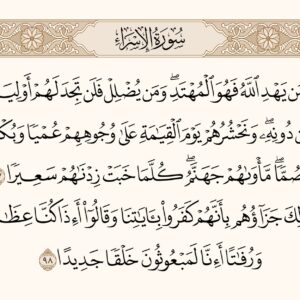 سُورَةُ الإِسْرَاءِ
ن يَهْدِ ٱللَّهُ فَهُوَ ٱلْمُهْتَدِۖ وَمَن يُضْلِلْ فَلَن تَجِدَ لَهُمْ أَوْلِيَ
ن دُونِهِۦۖ وَنَحْشُرُهُمْ يَوْمَ ٱلْقِيَٰمَةِ عَلَىٰ وُجُوهِهِمْ عُمْيًا وَبُكْ
صُمًّاۖ مَّأْوَىٰهُمْ جَهَنَّمُۖ كُلَّمَا خَبَتْ زِدْنَٰهُمْ سَعِيرًا
لِكَ جَزَآؤُهُم بِأَنَّهُمْ كَفَرُوا۟ بِـَٔايَٰتِنَا وَقَالُوٓا۟ أَءِذَا كُنَّا عِظَٰ
وَرُفَٰتًا أَءِنَّا لَمَبْعُوثُونَ خَلْقًا جَدِيدًا ٩٨